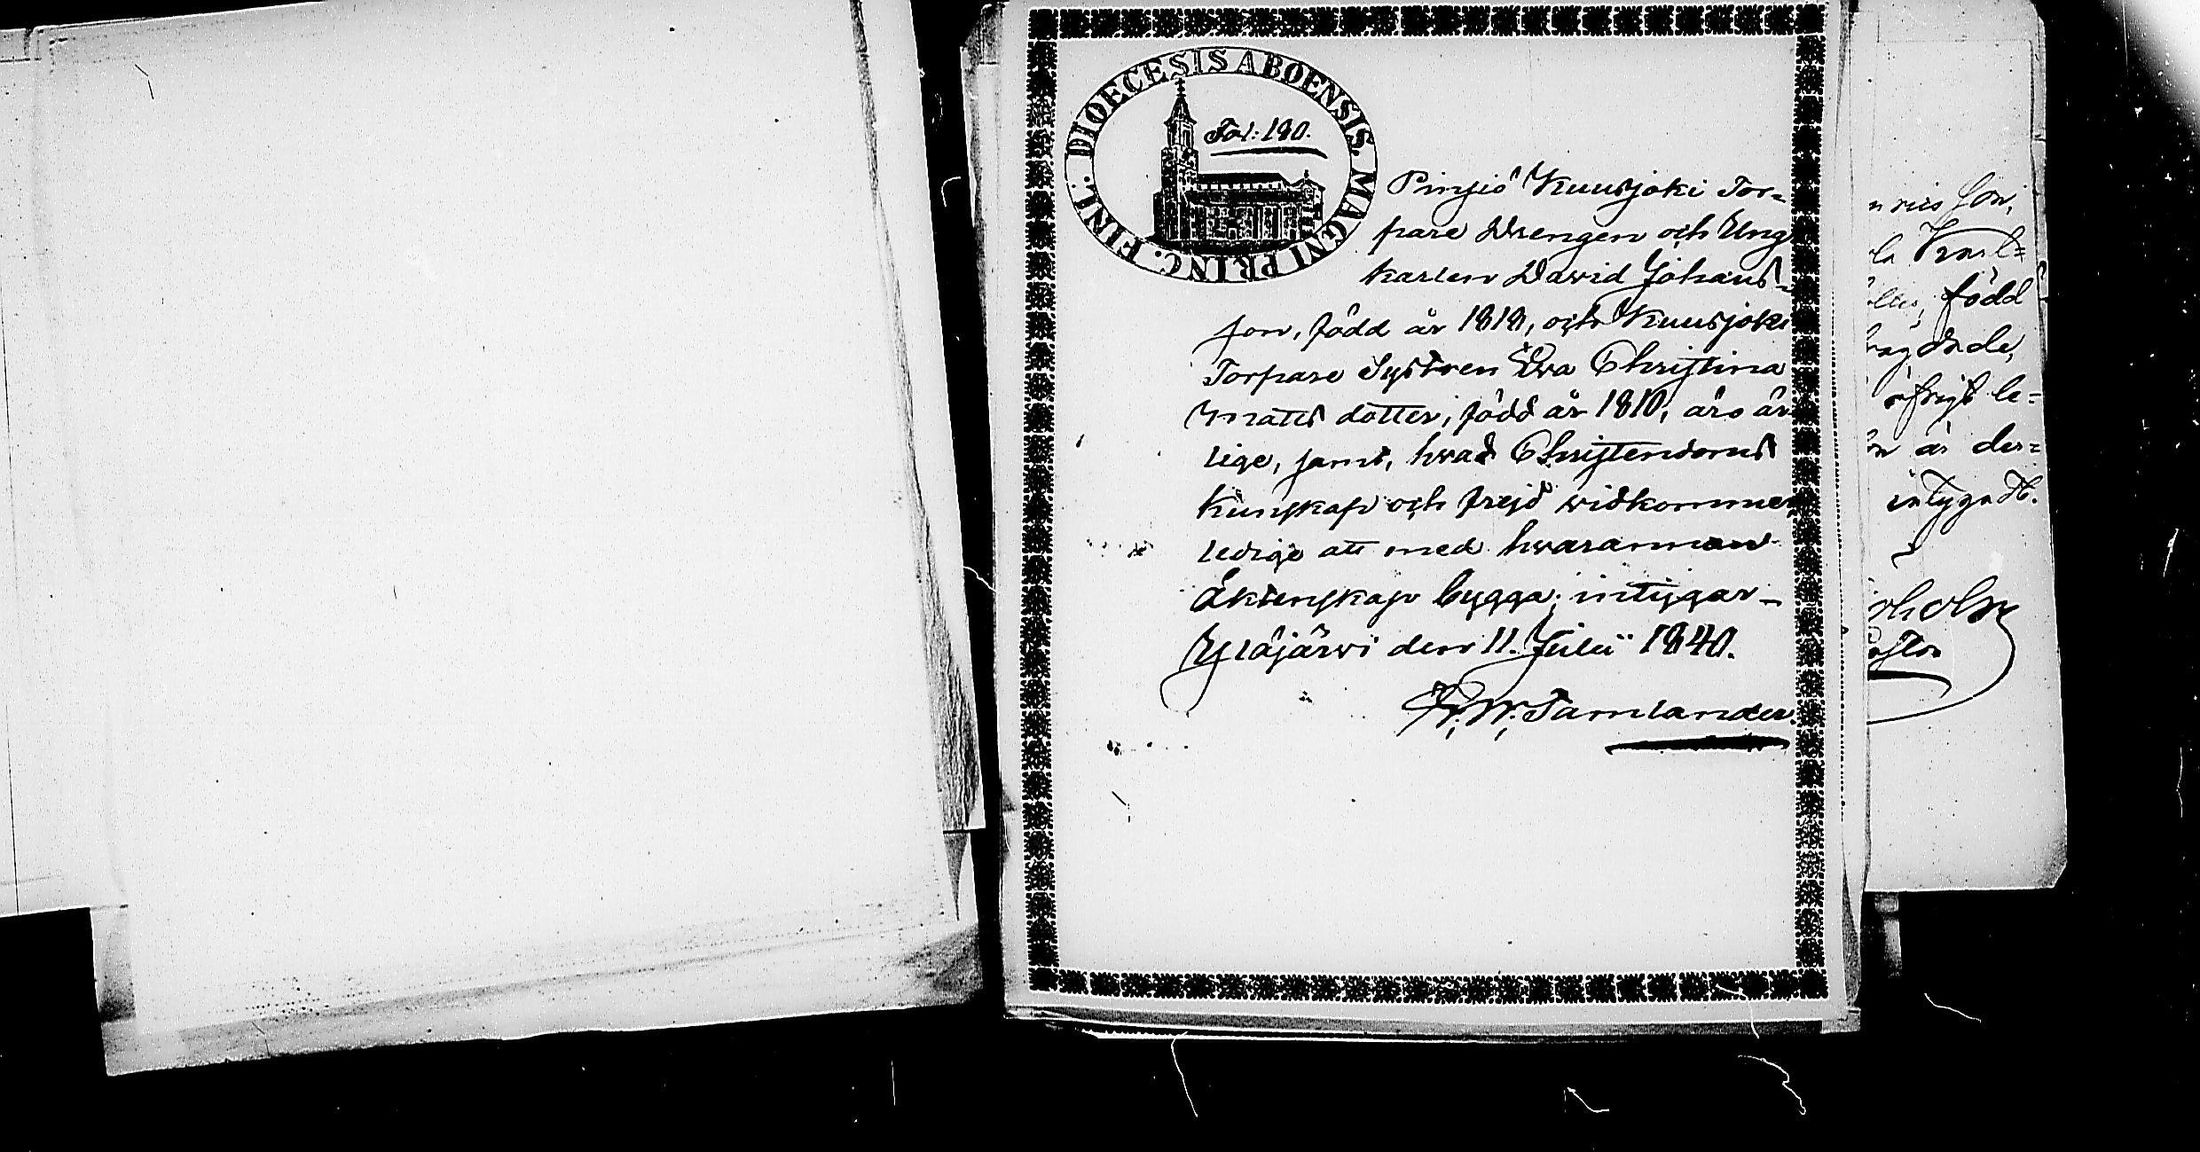 DIOECESIS ABOENSIS. MAGNI PRINC. FINL:
Fol: 180.
Pinsiö Kuusjoki Tor=
pare Drengen och Ung
karlen David Johans=
son, född år 1818, och Kuusjoki
Torpare Systren Eva Christina
Matts dotter, född år 1810, äro är
lige, samt, hvad Christendoms
kunskap och frejd widkommer
ledige att med hvarannan
Äktenskap bygga; intygar_
Ylöjärvi den 11. Julii 1840.
F. W. Tamlander.
född
är der=
intygadt.